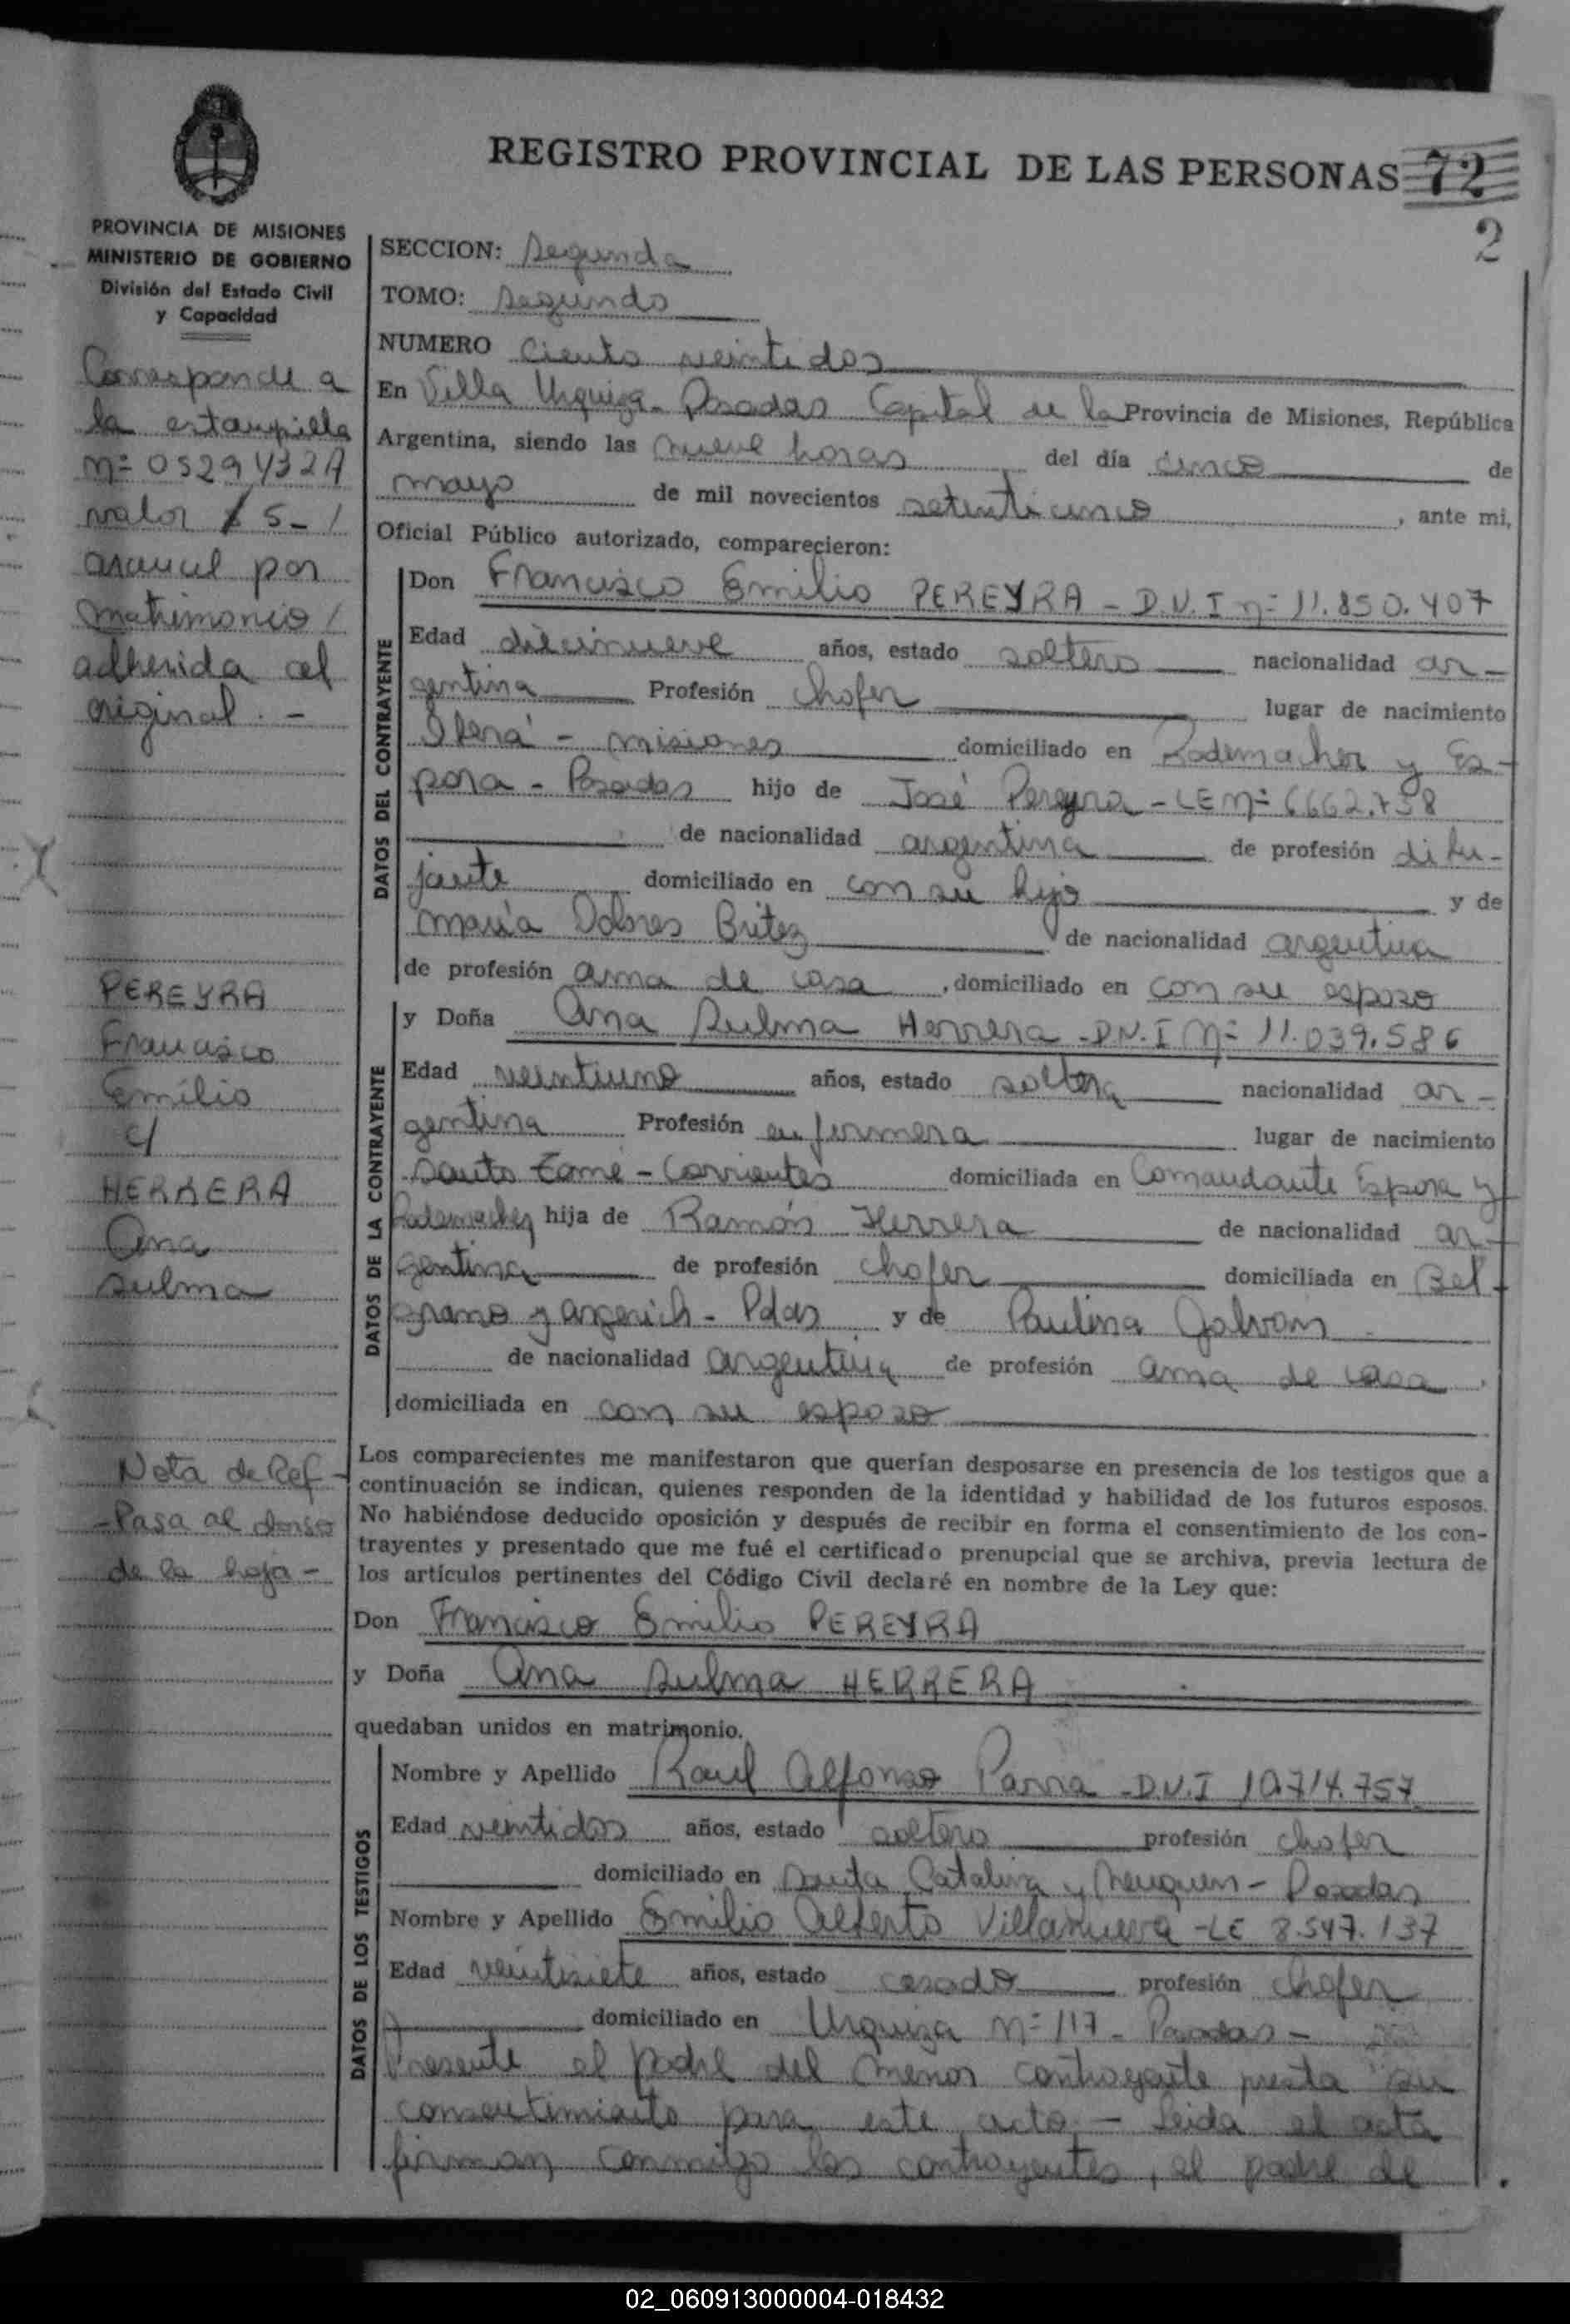 REGISTRO PROVINCIAL DE LAS PERSONAS 72
2
PROVINCIA DE MISIONES
MINISTERIO DE GOBIERNO
División del Estado Civil
y Capacidad
Corresponde a
la estampilla
Nº 05294732A
valor $ 5- /
arancel por
matrimonio /
adherida al
original. -
PEREYRA
Francisco
Emilio
c/
HERRERA
Ana
Sulma
Nota de Ref-
-Pasa al dorso
de la hoja-
SECCION: Segunda
TOMO: Segundo
NUMERO Ciento veintidos
En Villa Urquiza - Posadas Capital de la Provincia de Misiones, República
Argentina, siendo las nueve horas del día cinco de
mayo de mil novecientos setenticinco, ante mi,
Oficial Público autorizado, comparecieron:
DATOS DEL CONTRAYENTE
Don Francisco Emilio PEREYRA - D.N.I nº 11.850.407
Edad diecinueve años, estado soltero nacionalidad ar-
gentina Profesión Chofer lugar de nacimiento
Oberá - misiones domiciliado en Rademacher y Es-
pora - Posadas hijo de José Pereyra - LE Nº 6662.738
de nacionalidad argentina de profesión dibu-
jante domiciliado en con su hijo y de
María Dolores Britez de nacionalidad argentina
de profesión ama de casa, domiciliado en con su esposo
DATOS DE LA CONTRAYENTE
y Doña Ana Sulma Herrera - D.N.I Nº 11.039.586
Edad veintiuno años, estado soltera nacionalidad ar-
gentina Profesión enfermera lugar de nacimiento
Santo Tomé - Corrientes domiciliada en Comandante Espora y
Rademacher hija de Ramón Herrera de nacionalidad ar-
gentina de profesión chofer domiciliada en Bel-
grano y Argerich - Pdas y de Paulina Galvan
de nacionalidad argentina de profesión ama de casa.
domiciliada en con su esposo
Los comparecientes me manifestaron que querían desposarse en presencia de los testigos que a
continuación se indican, quienes responden de la identidad y habilidad de los futuros esposos.
No habiéndose deducido oposición y después de recibir en forma el consentimiento de los con-
trayentes y presentado que me fué el certificado prenupcial que se archiva, previa lectura de
los artículos pertinentes del Código Civil declaré en nombre de la Ley que:
Don Francisco Emilio PEREYRA
y Doña Ana Sulma HERRERA
quedaban unidos en matrimonio.
DATOS DE LOS TESTIGOS
Nombre y Apellido Raul Alfonso Parra - D.N.I 10.714.757
Edad veintidos años, estado soltero profesión chofer
domiciliado en Santa Catalina y Neuquen - Posadas
Nombre y Apellido Emilio Alberto Villanueva - LE 8.547.137
Edad veintisiete años, estado casado profesión Chofer
domiciliado en Urquiza Nº 117 - Posadas -
Presente el padre del menor contrayente presta su
consentimiento para este acto. - Leida el acta
firman conmigo los contrayentes, el padre de
02_060913000004-018432